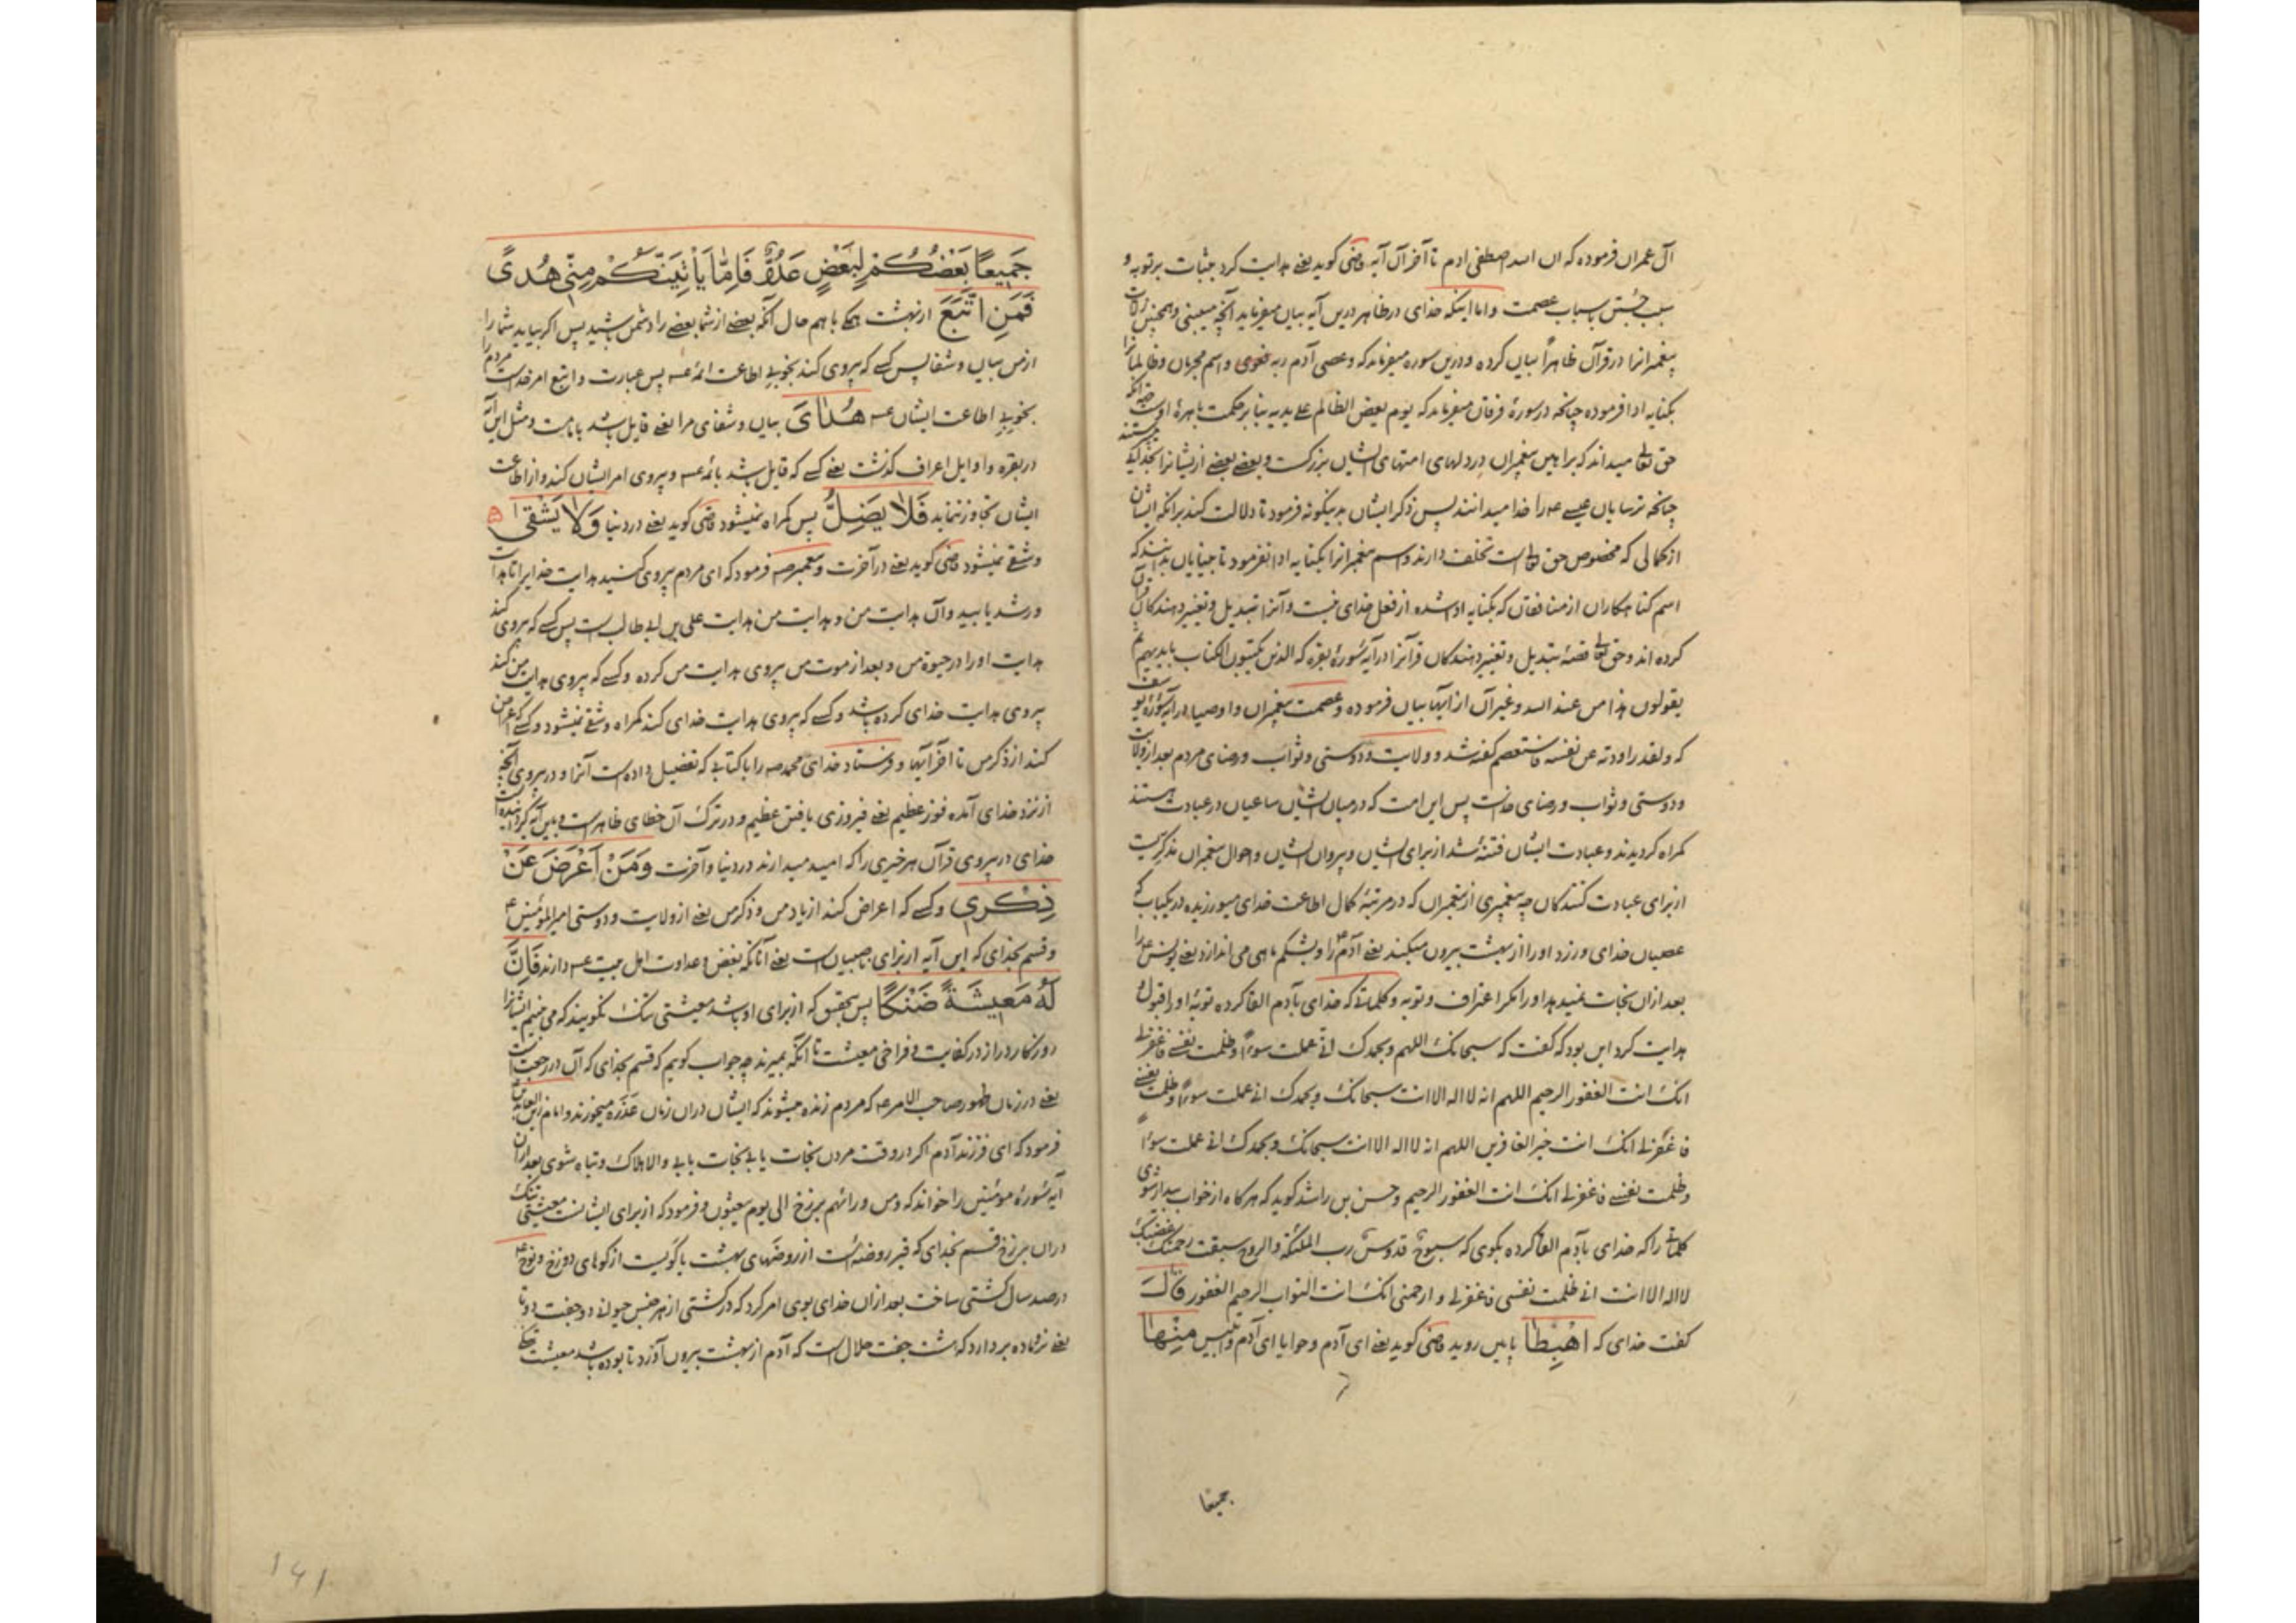 آل عمران فرموده که ان الله اصطفی ادم تا آخر آن آیه قاضی کوید یعنی هدایت کرد بثبات بر توبه و
سبب جستن باسباب عصمت و اما اینکه خدای در ظاهر درین آیه بیان میفرماید آنچه میبینی و همچنین
پیغمبرانرا در قرآن ظاهراً بیان کرده و درین سوره میفرماید که و عصی آدم ربه فغوی و اسم مجرمان و ظالمانرا
بکنایه ادا فرموده چنانچه در سورهٔ فرقان میفرماید که یوم یعض الظالم علی یدیه بنا بر حکمت باهرهٔ اوست
حق تعالی میداند که براهین پیغمبران در دلهای امتهای ایشان بزرکست و بعضی بعضی از ایشانرا
چنانچه ترسایان عیسی عه را خدا میدانند پس ذکر ایشان بدینکونه فرمود تا دلالت کند برانکه ایشان
از کمالی که مخصوص حق تعالی است تخلف دارند و اسم پیغمبرانرا بکنایه ادا نفرمود تا بدانند که
اسم کناهکاران از منافقان که بکنایه ادا شده از فعل خدای نیست و آنرا تبدیل و تغییر دهندکان قرآن
کرده اند و حق تعالی قصهٔ تبدیل و تغییر دهندکان قرآنرا در آیه سورهٔ بقره که الذین یکتبون الکتاب بایدیهم ثم
یقولون هذا من عند الله و غیر آن از آیها بیان فرموده و عصمت پیغمبران و اوصیا در آیه سورهٔ یوسف
که و لقد راودته عن نفسه فاستعصم کفته شد و ولایت و دوستی و ثواب و رضای مردم بعد از ولایت
و دوستی و ثواب و رضای خداست پس این امت که در میان ایشان ساعیان در عبادت هستند
کمراه کردیدند و عبادت ایشان فتنهٔ شد از برای ایشان و پیروان ایشان و احوال پیغمبران
از برای عبادت کنندکان چه پیغمبری از پیغمبران که در مرتبهٔ کمال اطاعت خدای میورزیده در یکباب که
عصیان خدای ورزد او را از بهشت بیرون میکند یعنی آدم عه را و بشکم ماهی می اندازد یعنی یونس عه را
بعد ازان نجات نمیدهد او را مکر اعتراف و توبه و کلماتی که خدای بآدم القا کرده توبهٔ او را قبول و
هدایت کرد این بود که کفت که سبحانک اللهم و بحمدک انی عملت سوءاً و ظلمت نفسی فاغفرلی
انک انت الغفور الرحیم اللهم انه لا اله الا انت سبحانک و بحمدک انی عملت سوءاً و ظلمت نفسی
فاغفرلی انک انت خیر الغافرین اللهم انه لا اله الا انت سبحانک و بحمدک انی عملت سوءاً
و ظلمت نفسی فاغفرلی انک انت الغفور الرحیم و حسن بن راشد کوید که هرکاه از خواب بیدار شوی
کلماتی را که خدای بآدم القا کرده بکوی که سبوح قدوس رب الملئکة و الروح سبقت رحمتک غضبک
لا اله الا انت انی ظلمت نفسی فاغفرلی و ارحمنی انک انت التواب الرحیم الغفور قال
کفت خدای که اهْبِطَا پایین روید قاضی کوید یعنی ای آدم و حوا یا ای آدم و ابلیس مِنْها
جمیعا
جَمِيعًا بَعْضُكُمْ لِبَعْضٍ عَدُوٌّ فَإِمَّا يَأْتِيَنَّكُمْ مِنِّي هُدًى
فَمَنِ اتَّبَعَ از بهشت همکی باهم حال آنکه بعضی از شما بعضی را دشمن باشید پس اکر بیاید شما را
از من بیان و شفا پس کسی که پیروی کند بخوبی اطاعت ائمه عه پس عبارت و اتبع امر خداست مردم را
بخوبی اطاعت ایشان عه هُدَايَ بیان و شفای مرا یعنی قایل باشد بامامت و مثل این آیه
در بقره و اوایل اعراف کذشت یعنی کسی که قایل باشد بائمه عه و پیروی امر ایشان کند و از اطاعت
ایشان تجاوز ننماید فَلَا يَضِلُّ پس کمراه نمیشود قاضی کوید یعنی در دنیا وَلَا يَشْقَى
و شقی نمیشود قاضی کوید یعنی در آخرت و پیغمبر صه فرمود که ای مردم پیروی کنید هدایت خدایرا تا هدایت
و رشد یابید و آن هدایت من و هدایت من هدایت علی بن ابی طالبست پس کسی که پیروی کند
هدایت او را در حیوة من و بعد از موت من پیروی هدایت من کرده و کسی که پیروی هدایت من کند
پیروی هدایت خدای کرده باشد و کسی که پیروی هدایت خدای کند کمراه و شقی نمیشود و کسی که اعراض
کند از ذکر من تا آخر آیها و فرستاد خدای محمد صه را با کتابی که تفضیل داده است آنرا و در پیروی آنچه
از نزد خدای آمده فوز عظیم یعنی فیروزی یافتن عظیم و در ترک آن خطای ظاهر است
خدای در پیروی قرآن هر خیری را که امید میدارند در دنیا و آخرت وَمَنْ أَعْرَضَ عَنْ
ذِكْرِي و کسی که اعراض کند از یاد من و ذکر من یعنی از ولایت و دوستی امیر المؤمنین عه
و قسم بخدای که این آیه از برای ناصبیان است یعنی آنانکه بغض و عداوت اهل بیت عه دارند فَإِنَّ
لَهُ مَعِيشَةً ضَنْكًا پس بتحقیق که از برای او باشد معیشتی تنک نکویند که می بینیم ایشانرا
روزکار دراز در کفایت و فراخی معیشت تا آنکه بمیرند چه جواب کویم که قسم بخدای که آن در رجعت است
یعنی در زمان ظهور صاحب الامر عه که مردم زنده میشوند که ایشان دران زمان عَذَرَه میخورند و امام زین العابدین عه
فرمود که ای فرزند آدم اکر در وقت مردن نجات یابی نجات یابی و الا هلاک و تباه شوی بعد ازان
آیه سورهٔ مؤمنین را خواند که و من ورائهم برزخ الی یوم یبعثون و فرمود که از برای ایشانست معیشتی تنک
دران برزخ قسم بخدای که قبر روضه است از روضهای بهشت یا کویست از کوهای دوزخ و نوح عه
در صد سال کشتی ساخت بعد ازان خدای بوی امر کرد که در کشتی از هر جنس حیوانی دو جفت دو تا
یعنی نر و ماده بردارد که هشت جفت حلال است که آدم از بهشت بیرون آورد تا بوده باشد معیشت
۱۶۱